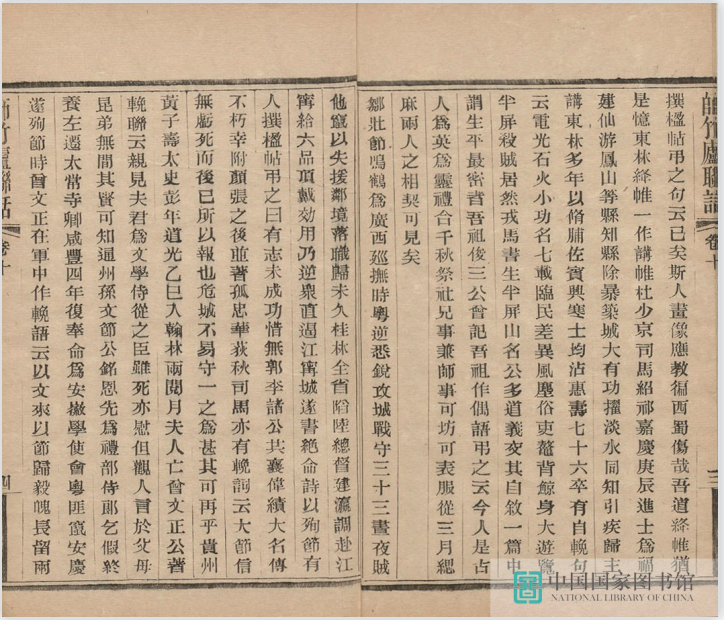 師竹廬聯話 卷十 三
撰楹帖弔之句云已矣斯人畫像應教徧西蜀傷哉吾道絳帷猶
是憶東林絳帷一作講帷杜少京司馬紹祁嘉慶庚辰進士爲福
建仙游鳳山等縣知縣除暴築城大有功擢淡水同知引疾歸主
講東林多年以脩脯佐賓興寒士均沾惠壽七十六卒有自輓句
云電光石火小功名七載臨民差異風塵俗吏鼇背鯨身大遊覽
半屏殺賊居然戎馬書生半屏山名公多道義交其自敘一篇中
謂生平最密者吾祖後三公曾記吾祖作偶語弔之云今人是古
人爲英爲靈禮台千秋祭社兄事兼師事可坊可表服從三月緦
麻兩人之相契可見矣
鄒壯節鳴鶴爲廣西廵撫時粵逆悉銳攻城戰守三十三晝夜賊
他竄以失援鄰境落職歸未久桂林全省陷陸總督建瀛調赴江
甯給六品頂戴効用乃逆衆直逼江甯城遂書絶命詩以殉節有
人撰楹帖弔之曰有志未成功惜無郭李諸公共襄偉績大名傳
不朽幸附顏張之後並著孤忠華荻秋司馬亦有輓詞云大節信
無虧死而後已所以報也危城不易守一之爲甚其可再乎貴州
黃子壽太史彭年道光乙巳入翰林兩閱月夫人亡曾文正公著
輓聯云親見夫君爲文學侍從之臣雖死亦慰但觀人言於父母
昆弟無間其賢可知通州孫文節公銘恩先爲禮部侍郞乞假終
養左遷太常寺卿咸豐四年復奉命爲安徽學使會粵匪竄安慶
遂殉節時曾文正在軍中作輓語云以文來以節歸毅魄長留兩
師竹廬聯話 卷十 四
中国国家图书馆
NATIONAL LIBRARY OF CHINA